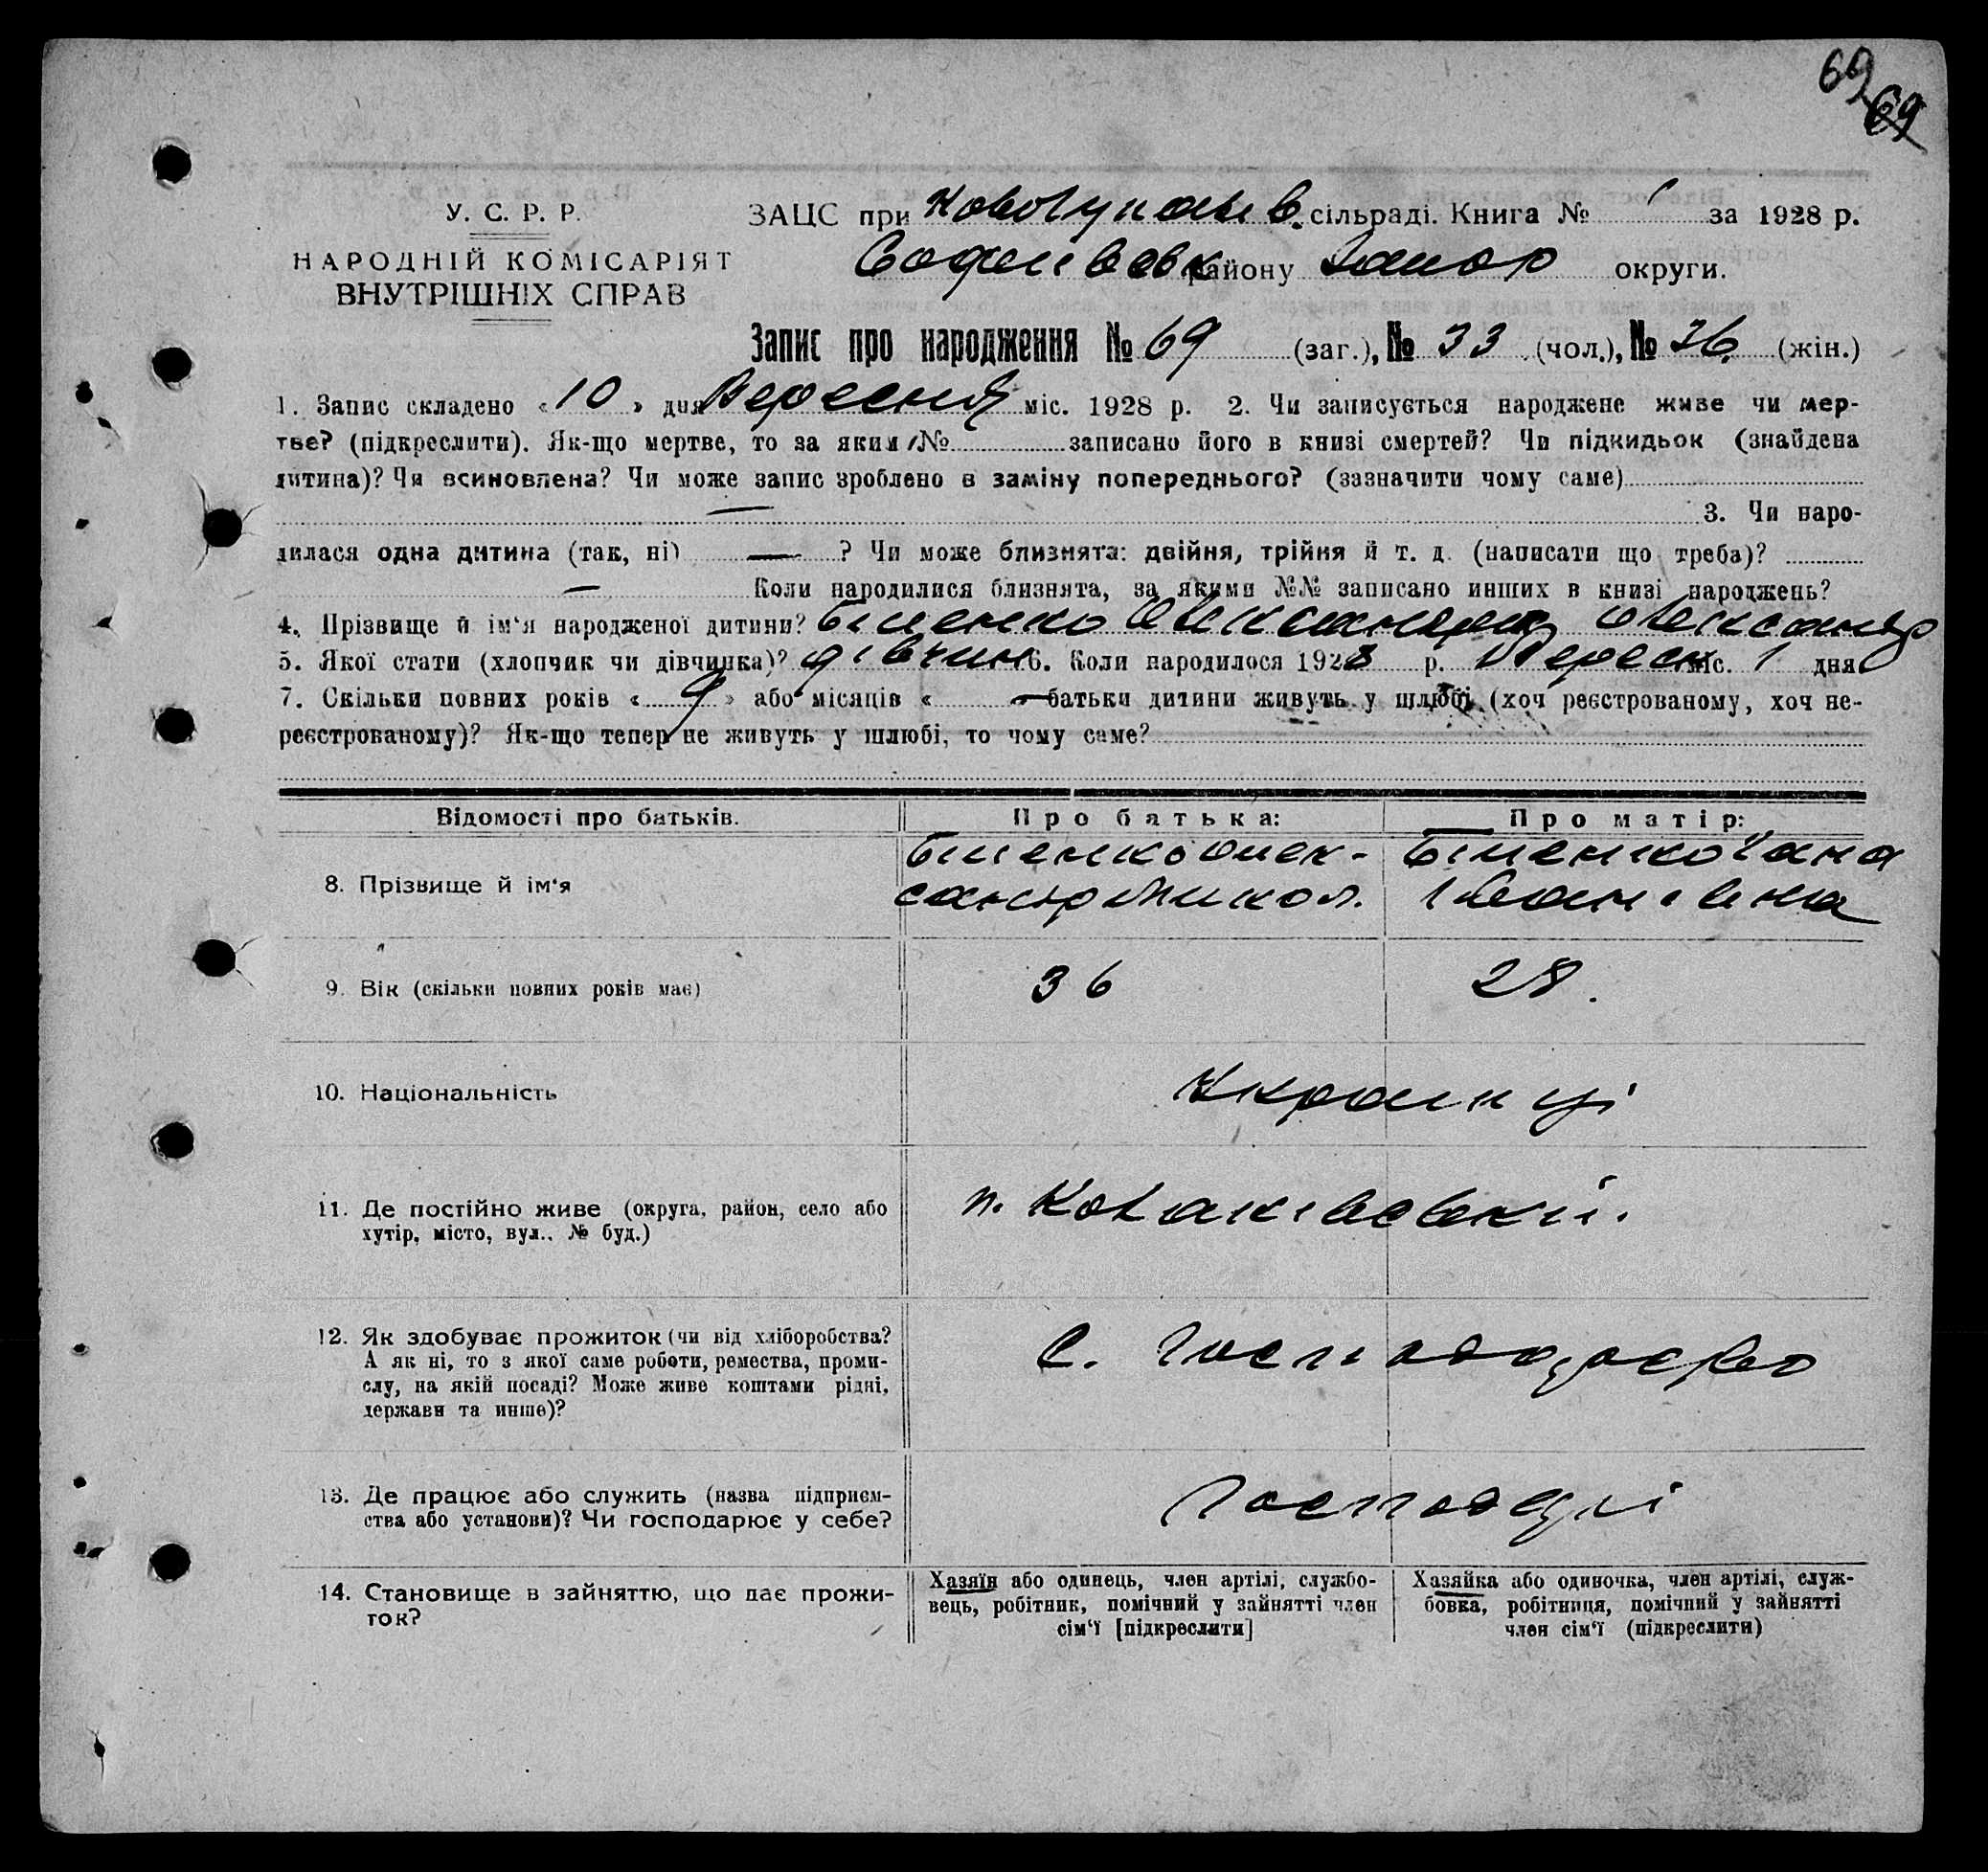 69
69
У. С. Р. Р.
НАРОДНІЙ КОМІСАРІЯТ
ВНУТРІШНІХ СПРАВ
ЗАЦС при сільраді. Книга № 1 за 1928 р.
Софиївськ району Запор округи.
Запис про народження № 69 (заг.), № 33 (чол.), № 36 (жін.)
1. Запис складено « 10 » дня Вересня міс. 1928 р. 2. Чи записується народжене живе чи мер-
тве? (підкреслити). Як-що мертве, то за яким № записано його в книзі смертей? Чи підкидьок (знайдена
дитина)? Чи всиновлена? Чи може запис зроблено в заміну попереднього? (зазначити чому саме)
— 3. Чи наро-
дилася одна дитина (так, ні) — ? Чи може близнята: двійня, трійня й т. д. (написати що треба)?
— Коли народилися близнята, за якими №№ записано инших в книзі народжень?
4. Прізвище й ім'я народженої дитини? Біленко Олександра Олександр
5. Якої стати (хлопчик чи дівчинка)? дівчин 6. Коли народилося 1928 р. Вересн міс. 1 дня
7. Скільки повних років « 9 » або місяців « — батьки дитини живуть у шлюбі (хоч реєстрованому, хоч не-
реєстрованому)? Як-що тепер не живуть у шлюбі, то чому саме?
Відомості про батьків.
Про батька:
Про матір:
8. Прізвище й ім'я
Біленко Олек-
сандр Микол.
Біленко Ганна
Іванівна
9. Вік (скільки повних років має)
36
28.
10. Національність
Українці
11. Де постійно живе (округа, район, село або
хутір, місто, вул., № буд.)
12. Як здобуває прожиток (чи від хліборобства?
А як ні, то з якої саме роботи, ремества, проми-
слу, на якій посаді? Може живе коштами рідні,
держави та инше)?
С. Господарство
13. Де працює або служить (назва підприєм-
ства або установи)? Чи господарює у себе?
Господарі
14. Становище в зайняттю, що дає прожи-
ток?
Хазяїн або одинець, член артілі, службо-
вець, робітник, помічний у зайнятті член
сім'ї [підкреслити]
Хазяйка або одиночка, член артілі, служ-
бовка, робітниця, помічний у зайнятті
член сім'ї (підкреслити)